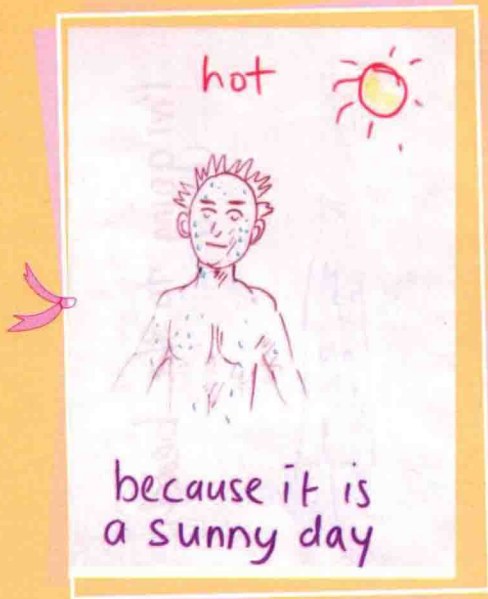 hot
because it is
a sunny day